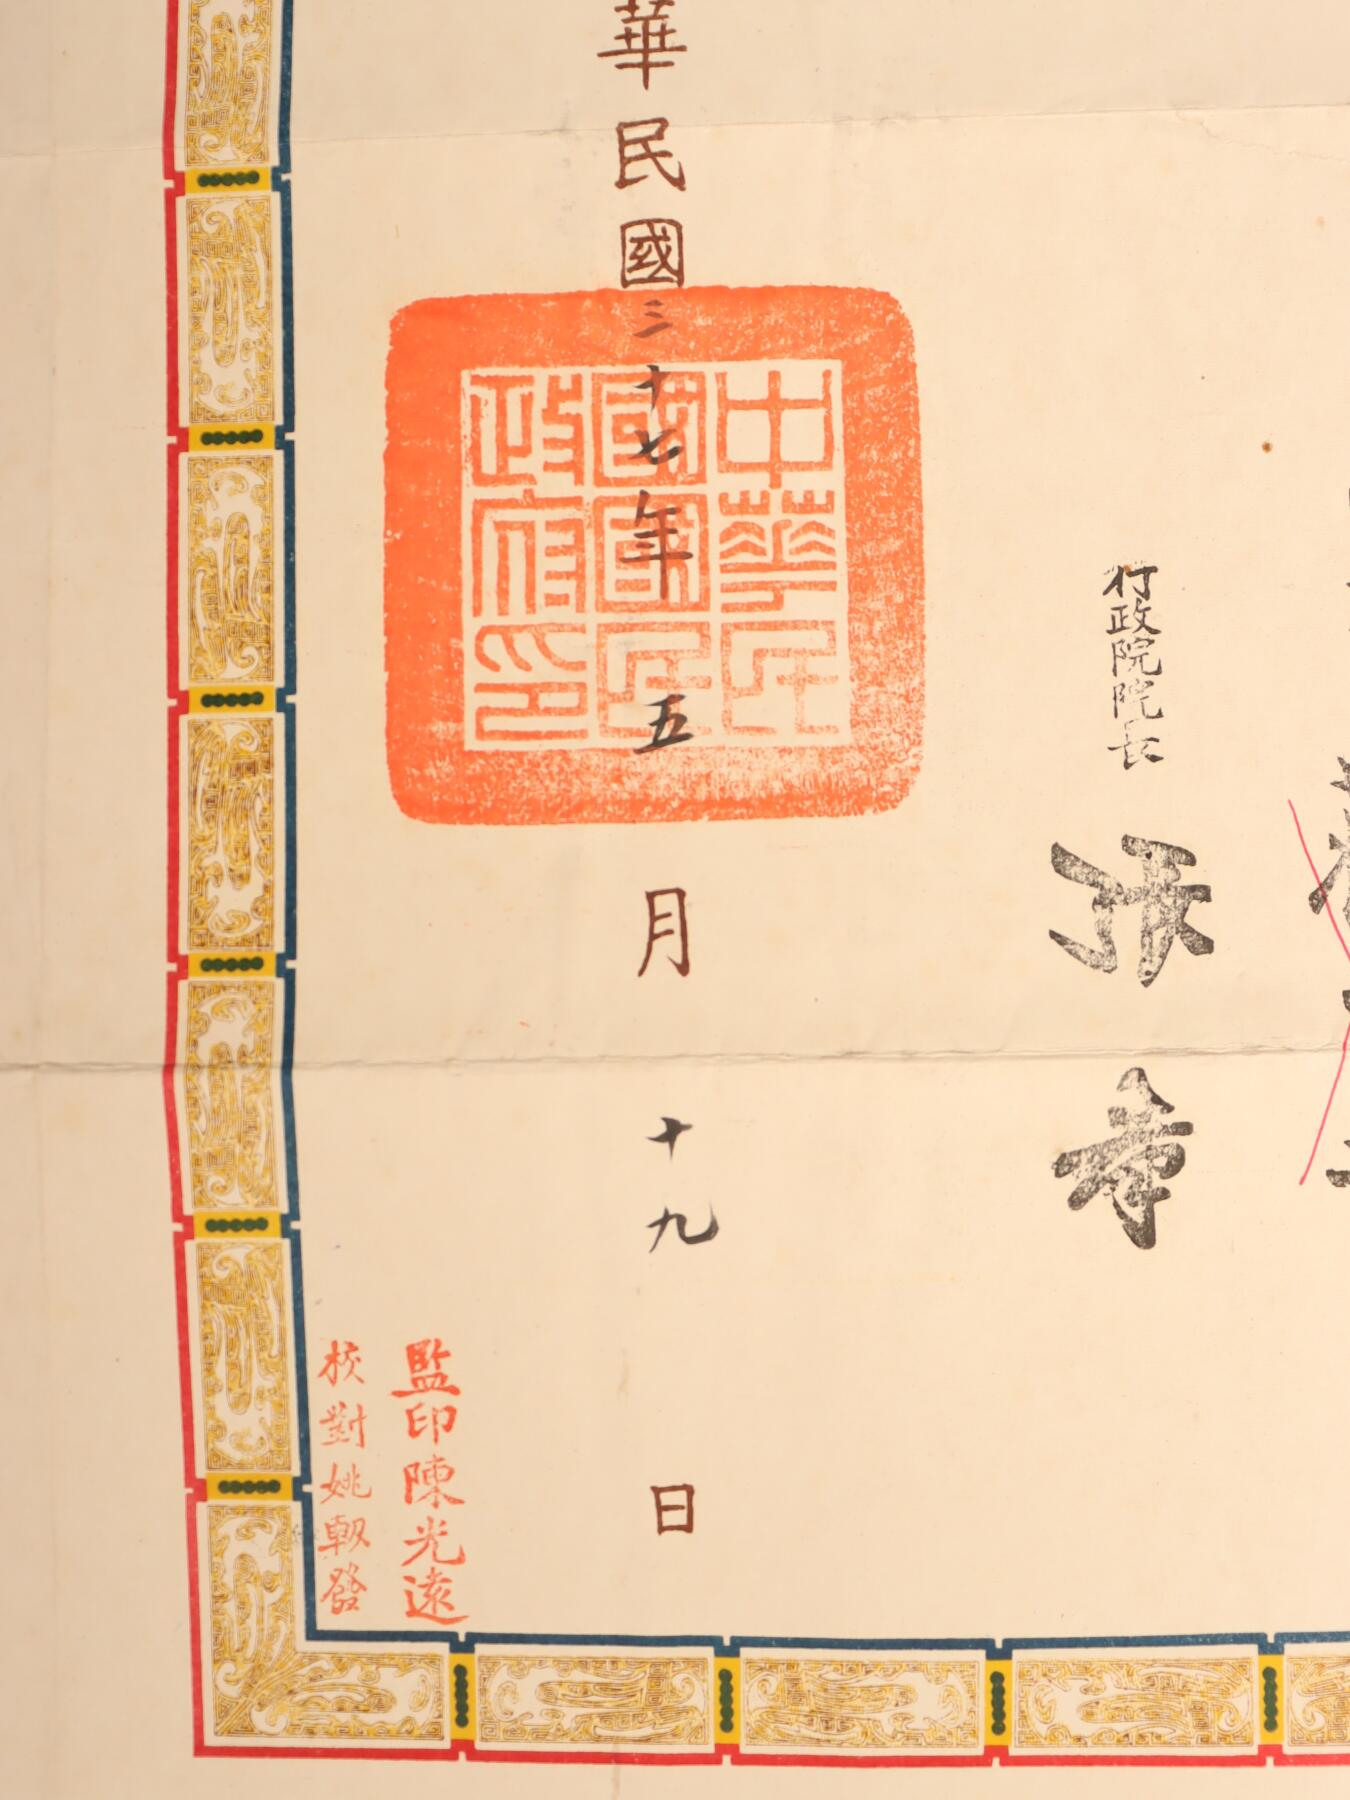 行政院院長
張羣
華民國三十七年五月十九日
中華民
國國民
政府印
監印陳光遠
校對姚軔發